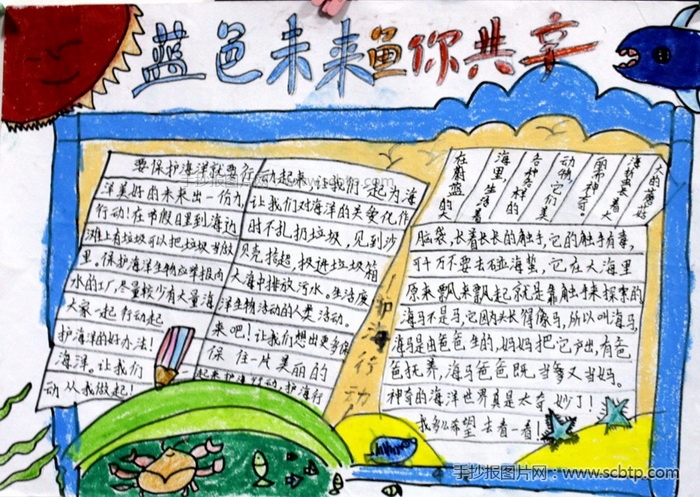 蓝色未来鱼你共享
要保护海洋就要行动起来,让我们一起为海
洋美好的未来出一份力 让我们对海洋的关爱化作
行动!在节假日里到海边 时不扎扔垃圾,见到沙
滩上有垃圾可以把垃圾当做 贝壳拾起,投进垃圾箱
里。保护海洋生物应举报向 大海中排放污水。生活废
水的工厂,尽量较少有大量海洋生物活动的人类活动。
大家一起行动起 来吧!让我们想出更多保
护海洋的好办法! 保住一片美丽的
海洋。让我们 一起来护海行动,护海行
动从我做起!
护海行动
在蔚蓝的大
海里,生活着
各种各样的
动物,它们美
丽而神奇。
海蜇长着大
大的蘑菇
脑袋,长着长长的触手,它的触手有毒,
千万不要去碰海蜇,它在大海里
原来飘来飘起就是靠触手来探索的
海马不是马,它因为头长得像马,所以叫海马,
海马是由爸爸生的,妈妈把它产出,有爸
爸托养,海马爸爸既当爹又当妈。
神奇的海洋世界真是太奇妙了!
我多么希望去看一看!
手抄报图片网:www.scbtp.com